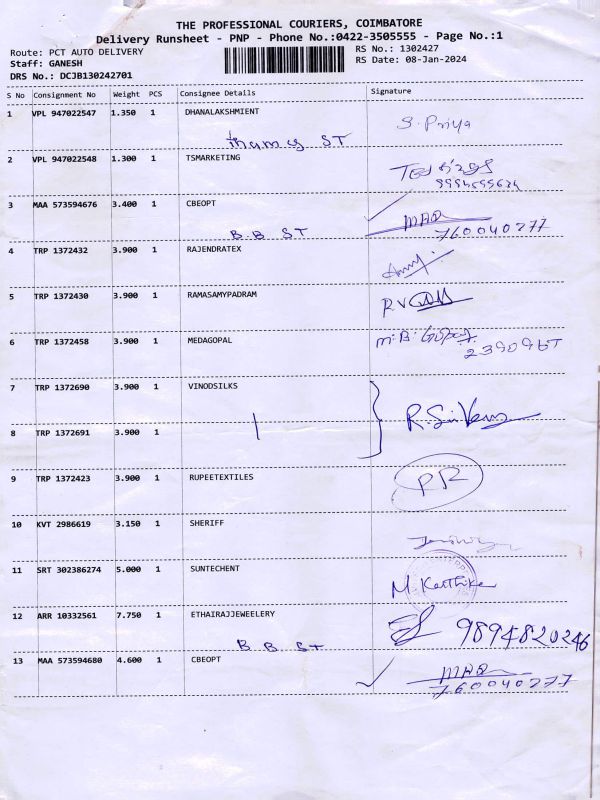 THE PROFESSIONAL COURIERS, COIMBATORE
Delivery Runsheet - PNP - Phone No.:0422-3505555 - Page No.:1
Route: PCT AUTO DELIVERY RS No.: 1302427
Staff: GANESH RS Date: 08-Jan-2024
DRS No.: DCJB130242701
S No Consignment No Weight PCS Consignee Details Signature
1 VPL 947022547 1.350 1 DHANALAKSHMIENT S. Priya
ST
2 VPL 947022548 1.300 1 TSMARKETING
3 MAA 573594676 3.400 1 CBEOPT
B.B ST 760040277
4 TRP 1372432 3.900 1 RAJENDRATEX
5 TRP 1372430 3.900 1 RAMASAMYPADRAM
6 TRP 1372458 3.900 1 MEDAGOPAL M.B. Gopal
7 TRP 1372690 3.900 1 VINODSILKS
8 TRP 1372691 3.900 1
9 TRP 1372423 3.900 1 RUPEETEXTILES PR
10 KVT 2986619 3.150 1 SHERIFF
11 SRT 302386274 5.000 1 SUNTECHENT M. Karthika
12 ARR 10332561 7.750 1 ETHAIRAJJEWEELERY 9894820246
B B ST
13 MAA 573594680 4.600 1 CBEOPT
760040277